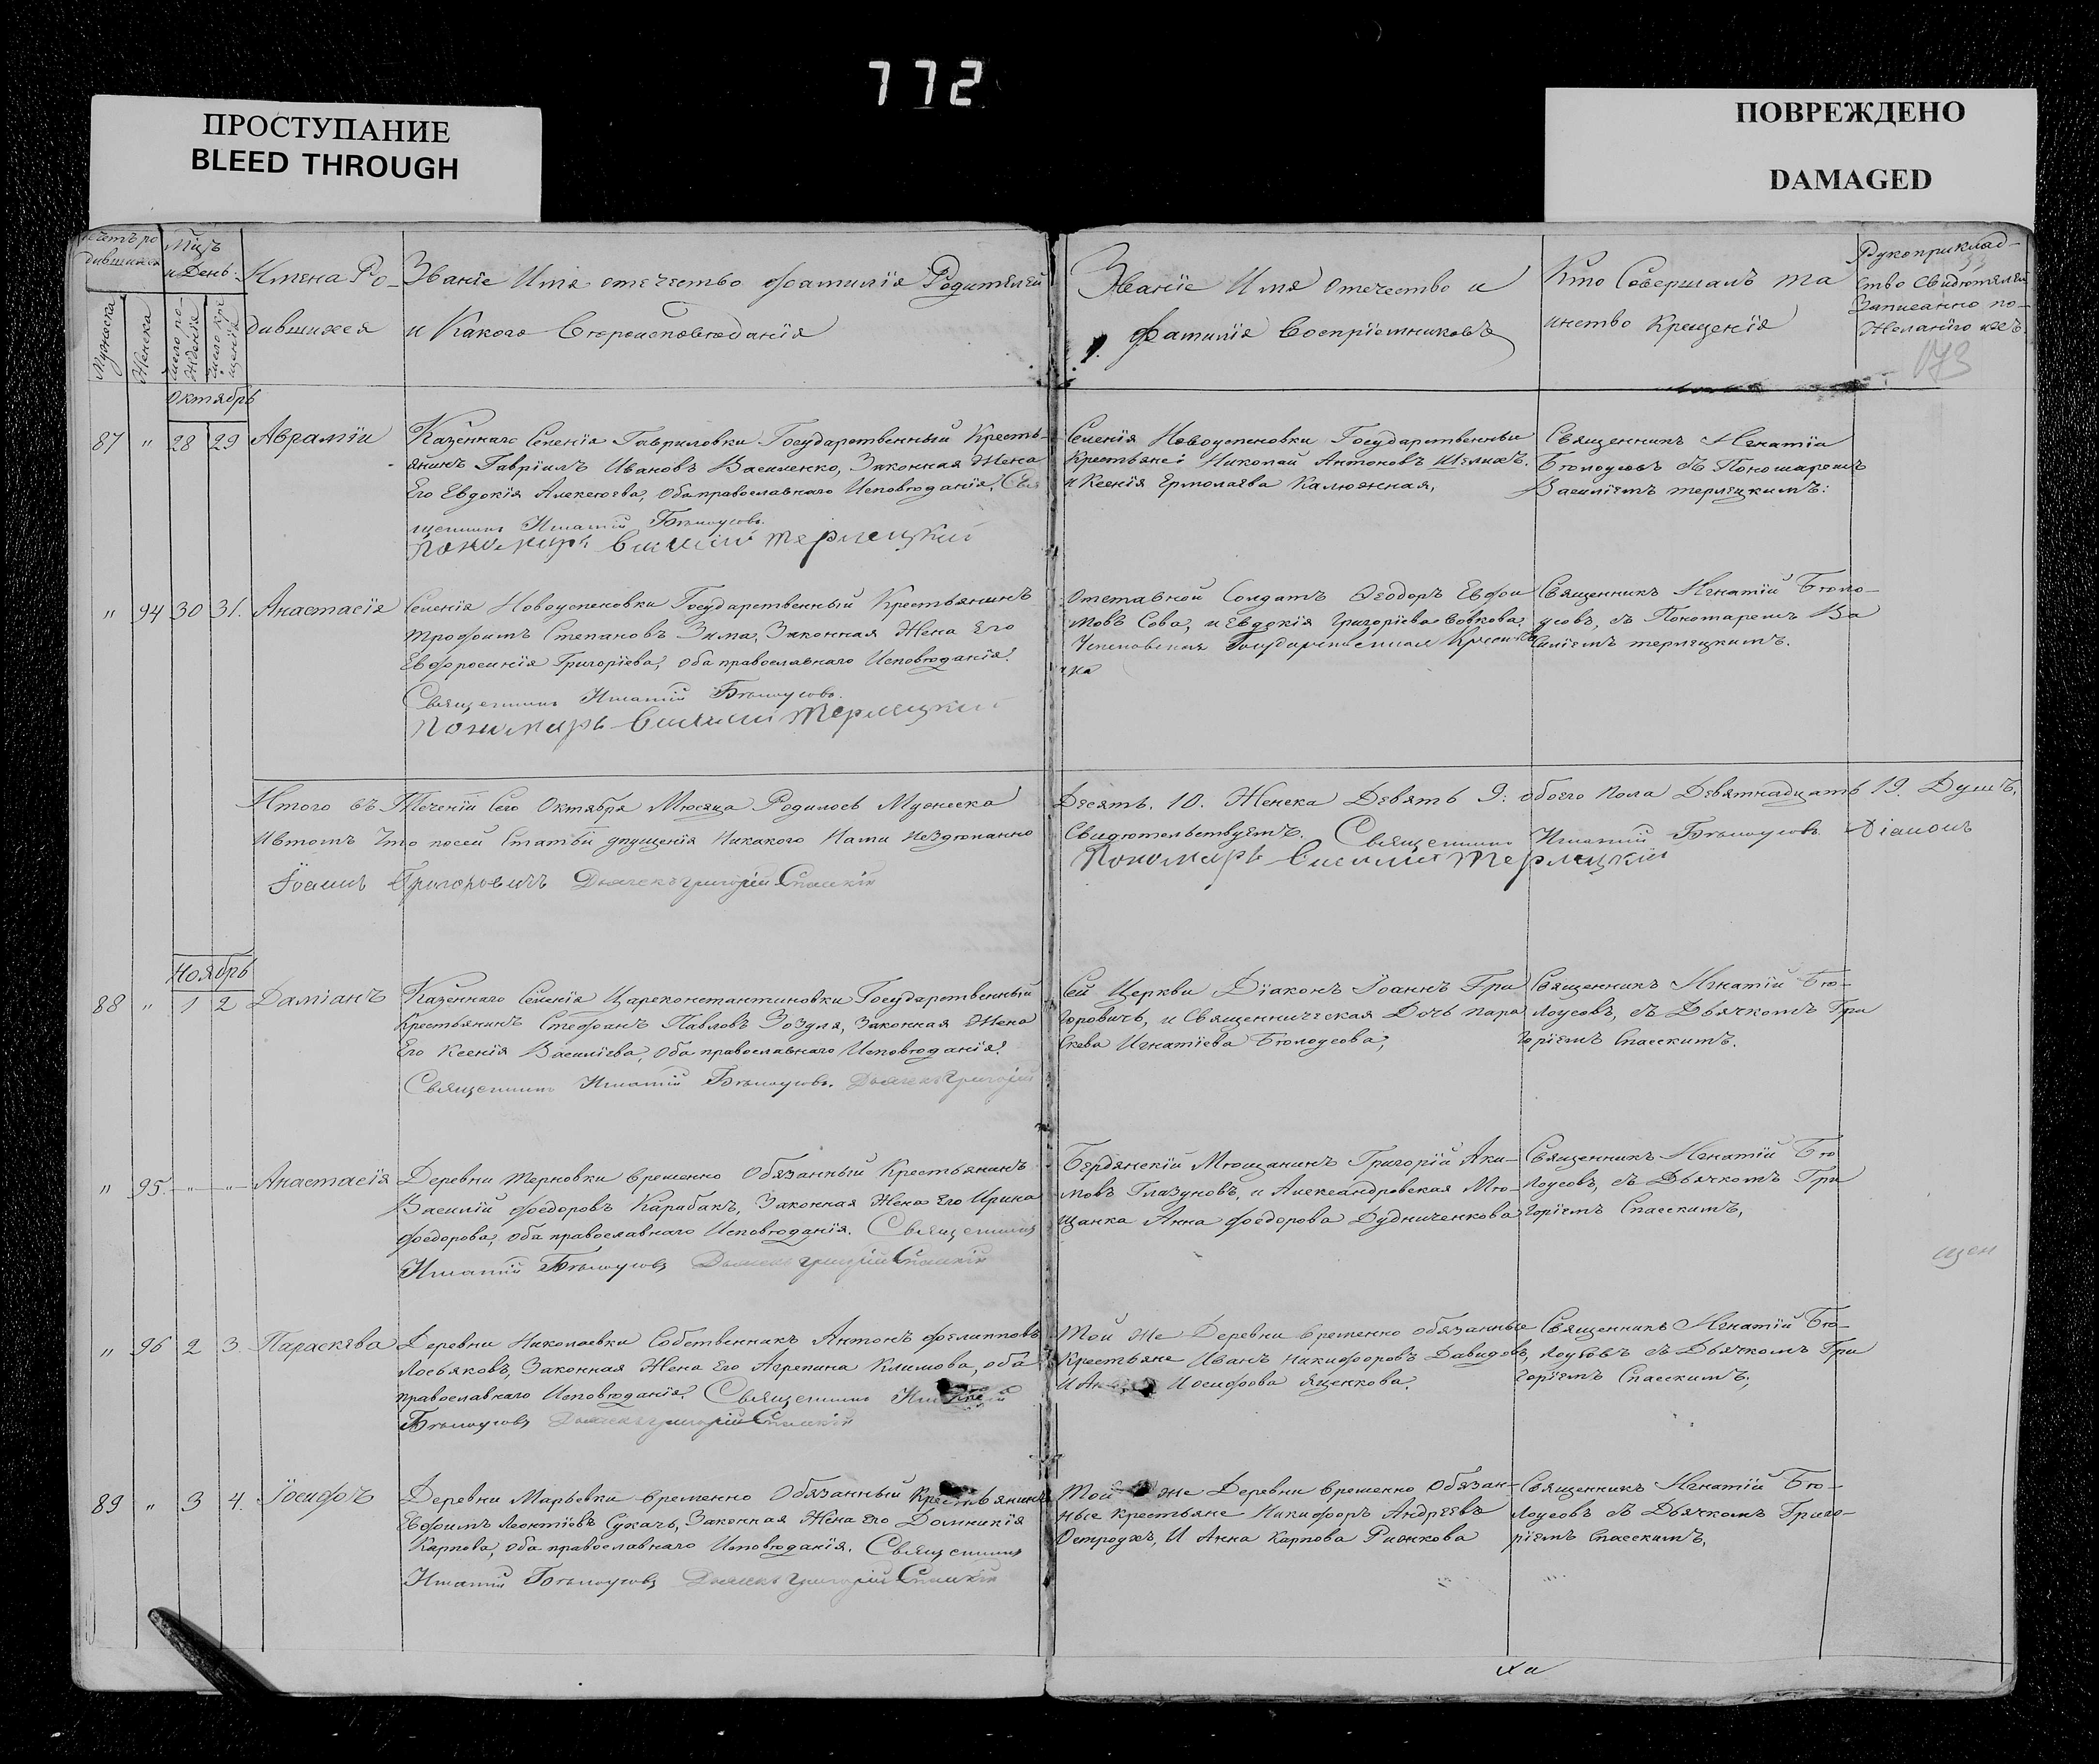 772
ПРОСТУПАНИЕ
BLEED THROUGH
ПОВРЕЖДЕНО
DAMAGED
Счетъ ро
дившихся
Мужеска
Женска
Мцъ
и День
Число ро-
жденія
Число кре
щенія
Имена Ро-
дившихся
Званіе Имя отечество фамилія Родителей
и Какого Вѣроисповѣданія
Званіе Имя Отечество и
Фамилія Воспріемниковъ
Кто Совершалъ та
инство Крещенія
Рукоприклад-
ство Свидѣтелей
Записанно по-
Желанію ихъ
173
Октябрь
87 " 28 29 Аврамій
Казеннаго Селенія Гавриловки Государственный Кресть-
янинъ Гавріилъ Ивановъ Василенко, Законная Жена
Его Евдокія Алексѣева, оба православнаго Исповѣданія. Свя
щенникъ Игнатій Бѣлоусовъ.
Пономарь Василій Терлецкій
Селенія Новоуспеновки Государственныи
Крестьяне: Николай Антоновъ
и Ксенія Ермолаева Калюжная,
Священникъ Игнатіи
Бѣлоусовъ съ Пономаремъ
Василіемъ терлецкимъ:
" 94 30 31. Анастасія
Селенія Новоуспеновки Государственный Крестьянинъ
Трофимъ Степановъ Зима, Законная Жена Его
Евфросинія Григоріева, оба православнаго Исповѣданія.
Священникъ Игнатій Бѣлоусовъ.
Пономарь Василій Терлецкій
Отставной Солдатъ Ѳеодоръ Евфи
мовъ Сова, и Евдокія Григоріева Вовкова,
Успеновская Государственная Крестья
нка
Священникъ Игнатій Бѣло-
усовъ, съ Пономаремъ Ва
силіемъ терлецкимъ.
Итого въ Теченіи Сего Октября Мѣсяца Родилось Мужеска Десять. 10. Женска Девять 9: обоего Пола Девятнадцать 19. Душъ,
Ивтомъ Что посей Статьи упущенія Никакого Нами Нездѣланно Свидѣтельствуемъ. Священникъ Игнатій Бѣлоусовъ Діаконъ
Іоаннъ Григоровичъ Дьячекъ Григорій Спасскій Пономарь Василій Терлецкій
Ноябрь
88 " 1 2 Даміанъ
Казеннаго Селенія Цареконстантиновки Государственный
Крестьянинъ Стефанъ Павловъ Зозуля, Законная Жена
Его Ксенія Василіева, оба православнаго Исповѣданія.
Священникъ Игнатій Бѣлоусовъ. Дьячекъ Григорій
Сей Церкви Діаконъ Іоаннъ Гри
горовичъ, и Священническая Дочь пара
скева Игнатіева Бѣлоусова,
Священникъ Игнатій Бѣ-
лоусовъ, съ Дьячкомъ Гри
горіемъ Спасскимъ.
" 95. " " Анастасія
Деревни Терновки временно Обязанный Крестьянинъ
Василій Федоровъ Карабакъ, Законная Жена Его Ирина
Федорова, оба православнаго Исповѣданія. Священникъ
Игнатій Бѣлоусовъ Дьячекъ Григорій Спасскій
Бердянскій Мѣщанинъ Григорій Аки-
мовъ Глазуновъ, и Александровская Мѣ-
щанка Анна Федорова Дудниченкова
Священникъ Игнатій Бѣ
лоусовъ, съ Дьячкомъ Гри
горіемъ Спасскимъ,
щен
" 96 2 3. Параскева
Деревни Николаевки Собственникъ Антонъ Филипповъ
Лосьяковъ, Законная Жена Его Агрепина Климова, оба
православнаго Исповѣданія. Священникъ Игнатій
Бѣлоусовъ Дьячекъ Григорій Спасскій
Той же Деревни временно обязанные
Крестьяне Иванъ Никифоровъ Давидовъ,
И Іосифова Яценкова,
Священникъ Игнатій Бѣ-
лоусовъ съ Дьячкомъ Гри
горіемъ Спасскимъ,
89 " 3 4. Іосифъ
Деревни Марьевки временно Обязанный Крестьянинъ
Евфимъ Леонтіевъ Сукачъ, Законная Жена Его Домникія
Карпова, оба православнаго Исповѣданія. Священникъ
Игнатій Бѣлоусовъ Дьячекъ Григорій Спасскій
Той же Деревни временно Обязан-
ные крестьяне Никифоръ Андреевъ
Остроухъ, И Анна Карпова Рижкова
Священникъ Игнатій Бѣ-
лоусовъ съ Дьячкомъ Григо-
ріемъ Спасскимъ.